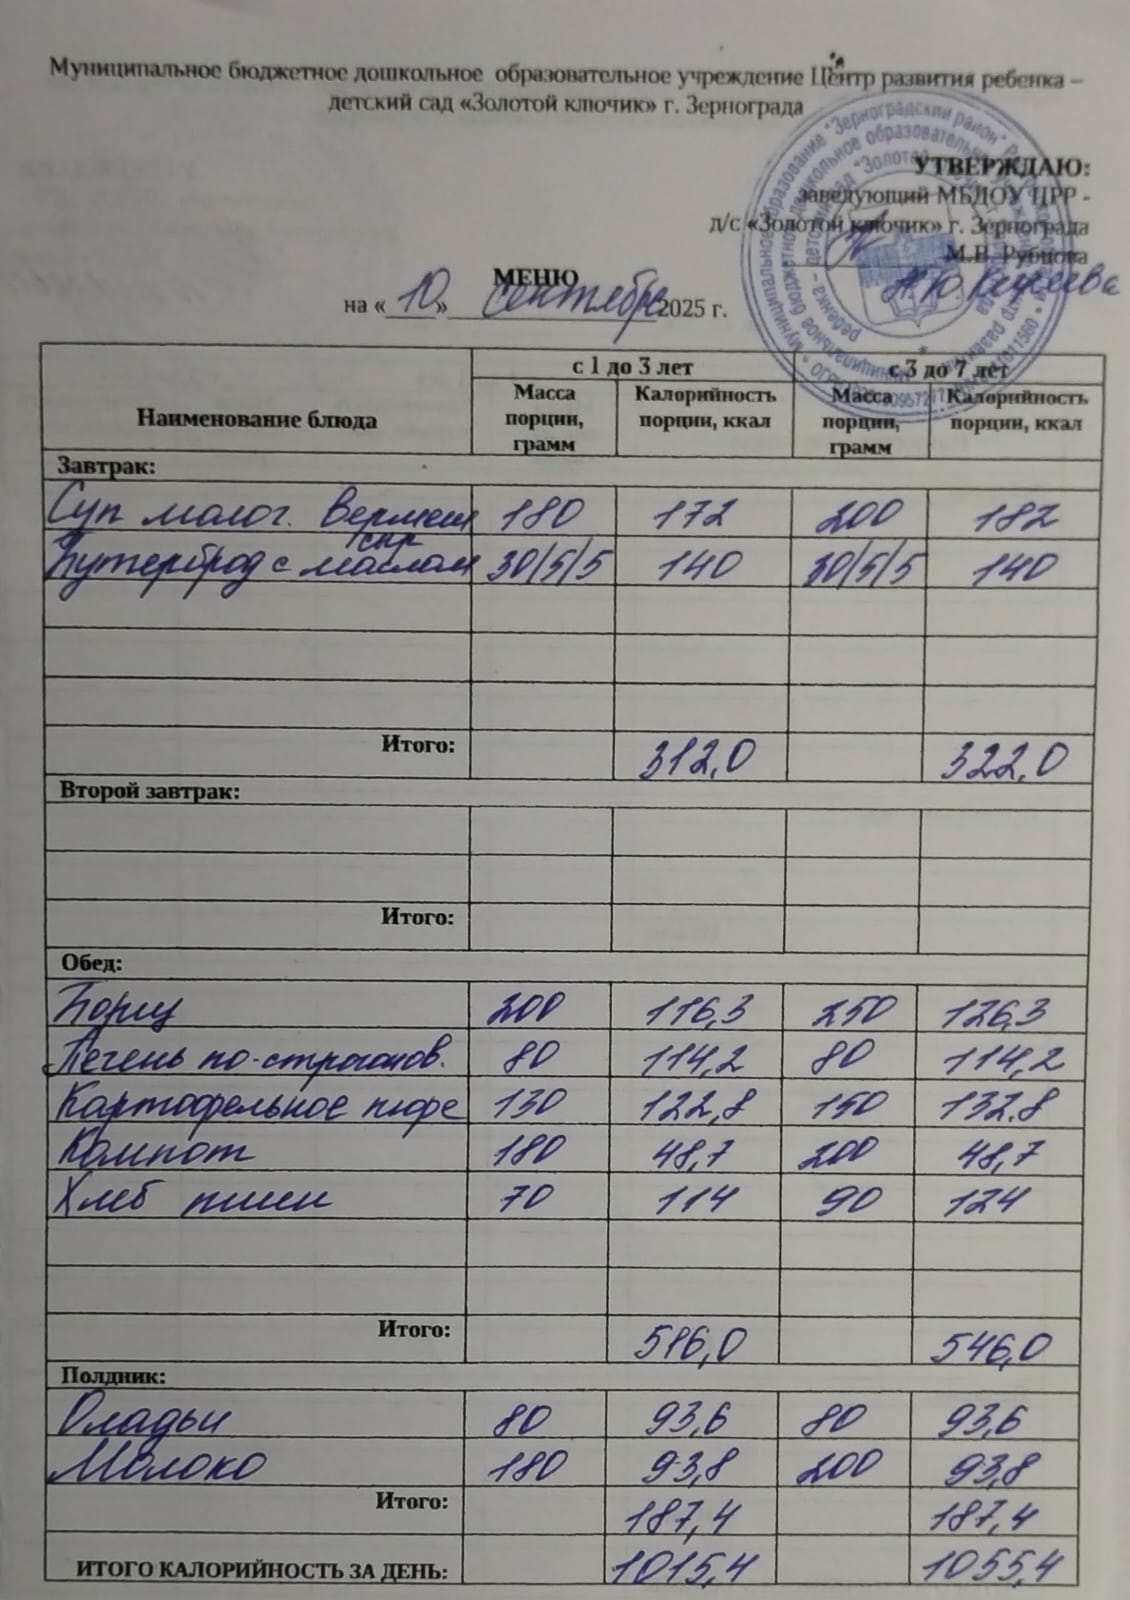 Муниципальное бюджетное дошкольное образовательное учреждение Центр развития ребенка –
детский сад «Золотой ключик» г. Зернограда
УТВЕРЖДАЮ:
заведующий МБДОУ ЦРР -
д/с «Золотой ключик» г. Зернограда
М.В. Рубцова
МЕНЮ
на «10» сентября 2025 г.
Наименование блюда с 1 до 3 лет с 3 до 7 лет
Масса порции, грамм Калорийность порции, ккал Масса порции, грамм Калорийность порции, ккал
Завтрак:
Суп молоч. Вермеш 180 172 200 182
Бутерброд с маслом/сыр 30/5/5 140 30/5/5 140
Итого: 312,0 322,0
Второй завтрак:
Итого:
Обед:
Борщ 200 116,3 250 126,3
Печень по-строганов. 80 114,2 80 114,2
Картофельное пюре 130 122,8 150 132.8
Компот 180 48,7 200 48,7
Хлеб пшен 70 114 90 124
Итого: 516,0 546,0
Полдник:
Оладьи 80 93,6 80 93,6
Молоко 180 93,8 200 93,8
Итого: 187,4 187,4
ИТОГО КАЛОРИЙНОСТЬ ЗА ДЕНЬ: 1015,4 1055,4